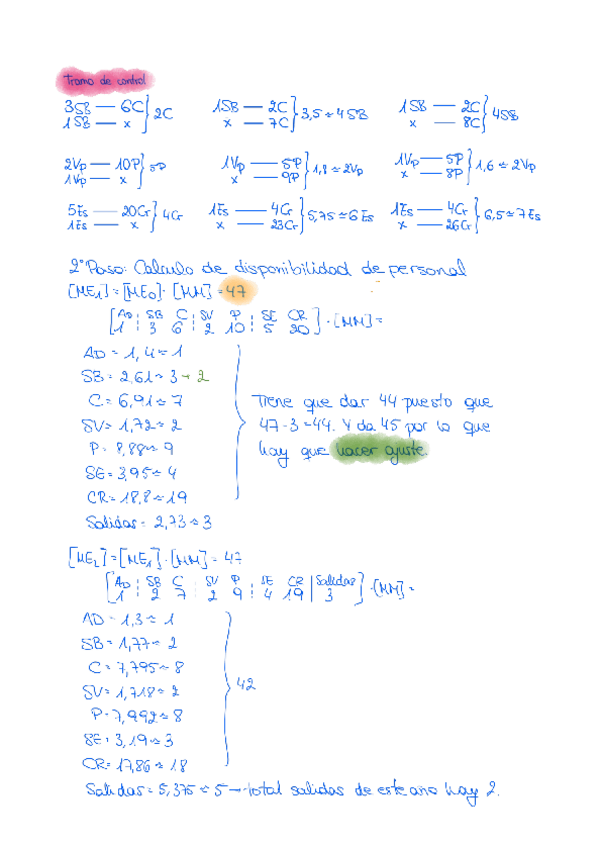 Tramo de control
3SB — 6C } 2C   1SB — 2C } 3,5 ≈ 4SB   1SB — 2C } 4SB
1SB — x   x — 7C   x — 8C
2Vp — 10P } 5P   1Vp — 5P } 1,8 ≈ 2Vp   1Vp — 5P } 1,6 ≈ 2Vp
1Vp — x   x — 9P   x — 8P
5Es — 20Cr } 4Cr   1Es — 4Cr } 5,75 ≈ 6Es   1Es — 4Cr } 6,5 ≈ 7Es
1Es — x   x — 23Cr   x — 26Cr
2º Paso: Calculo de disponibilidad de personal
[ME1] = [ME0] · [MM] = 47
[AD | SB C | SV P | SE CR
1 | 3 6 | 2 10 | 5 20] · [MM] =
AD = 1,4 ≈ 1
SB = 2,61 ≈ 3 → 2
C = 6,91 ≈ 7
SV = 1,72 ≈ 2
P = 8,88 ≈ 9
SE = 3,95 ≈ 4
CR = 18,8 ≈ 19
Salidas = 2,73 ≈ 3
Tiene que dar 44 puesto que
47 - 3 = 44. Y da 45 por lo que
hay que hacer ajuste.
[ME2] = [ME1] · [MM] = 47
[AD | SB C | SV P | SE CR | Salidas
1 | 2 7 | 2 9 | 4 19 | 3] · [MM] =
AD = 1,3 ≈ 1
SB = 1,77 ≈ 2
C = 7,795 ≈ 8
SV = 1,718 ≈ 2
P = 7,992 ≈ 8
SE = 3,19 ≈ 3
CR = 17,86 ≈ 18
42
Salidas = 5,375 ≈ 5 → total salidas de este año hay 2.